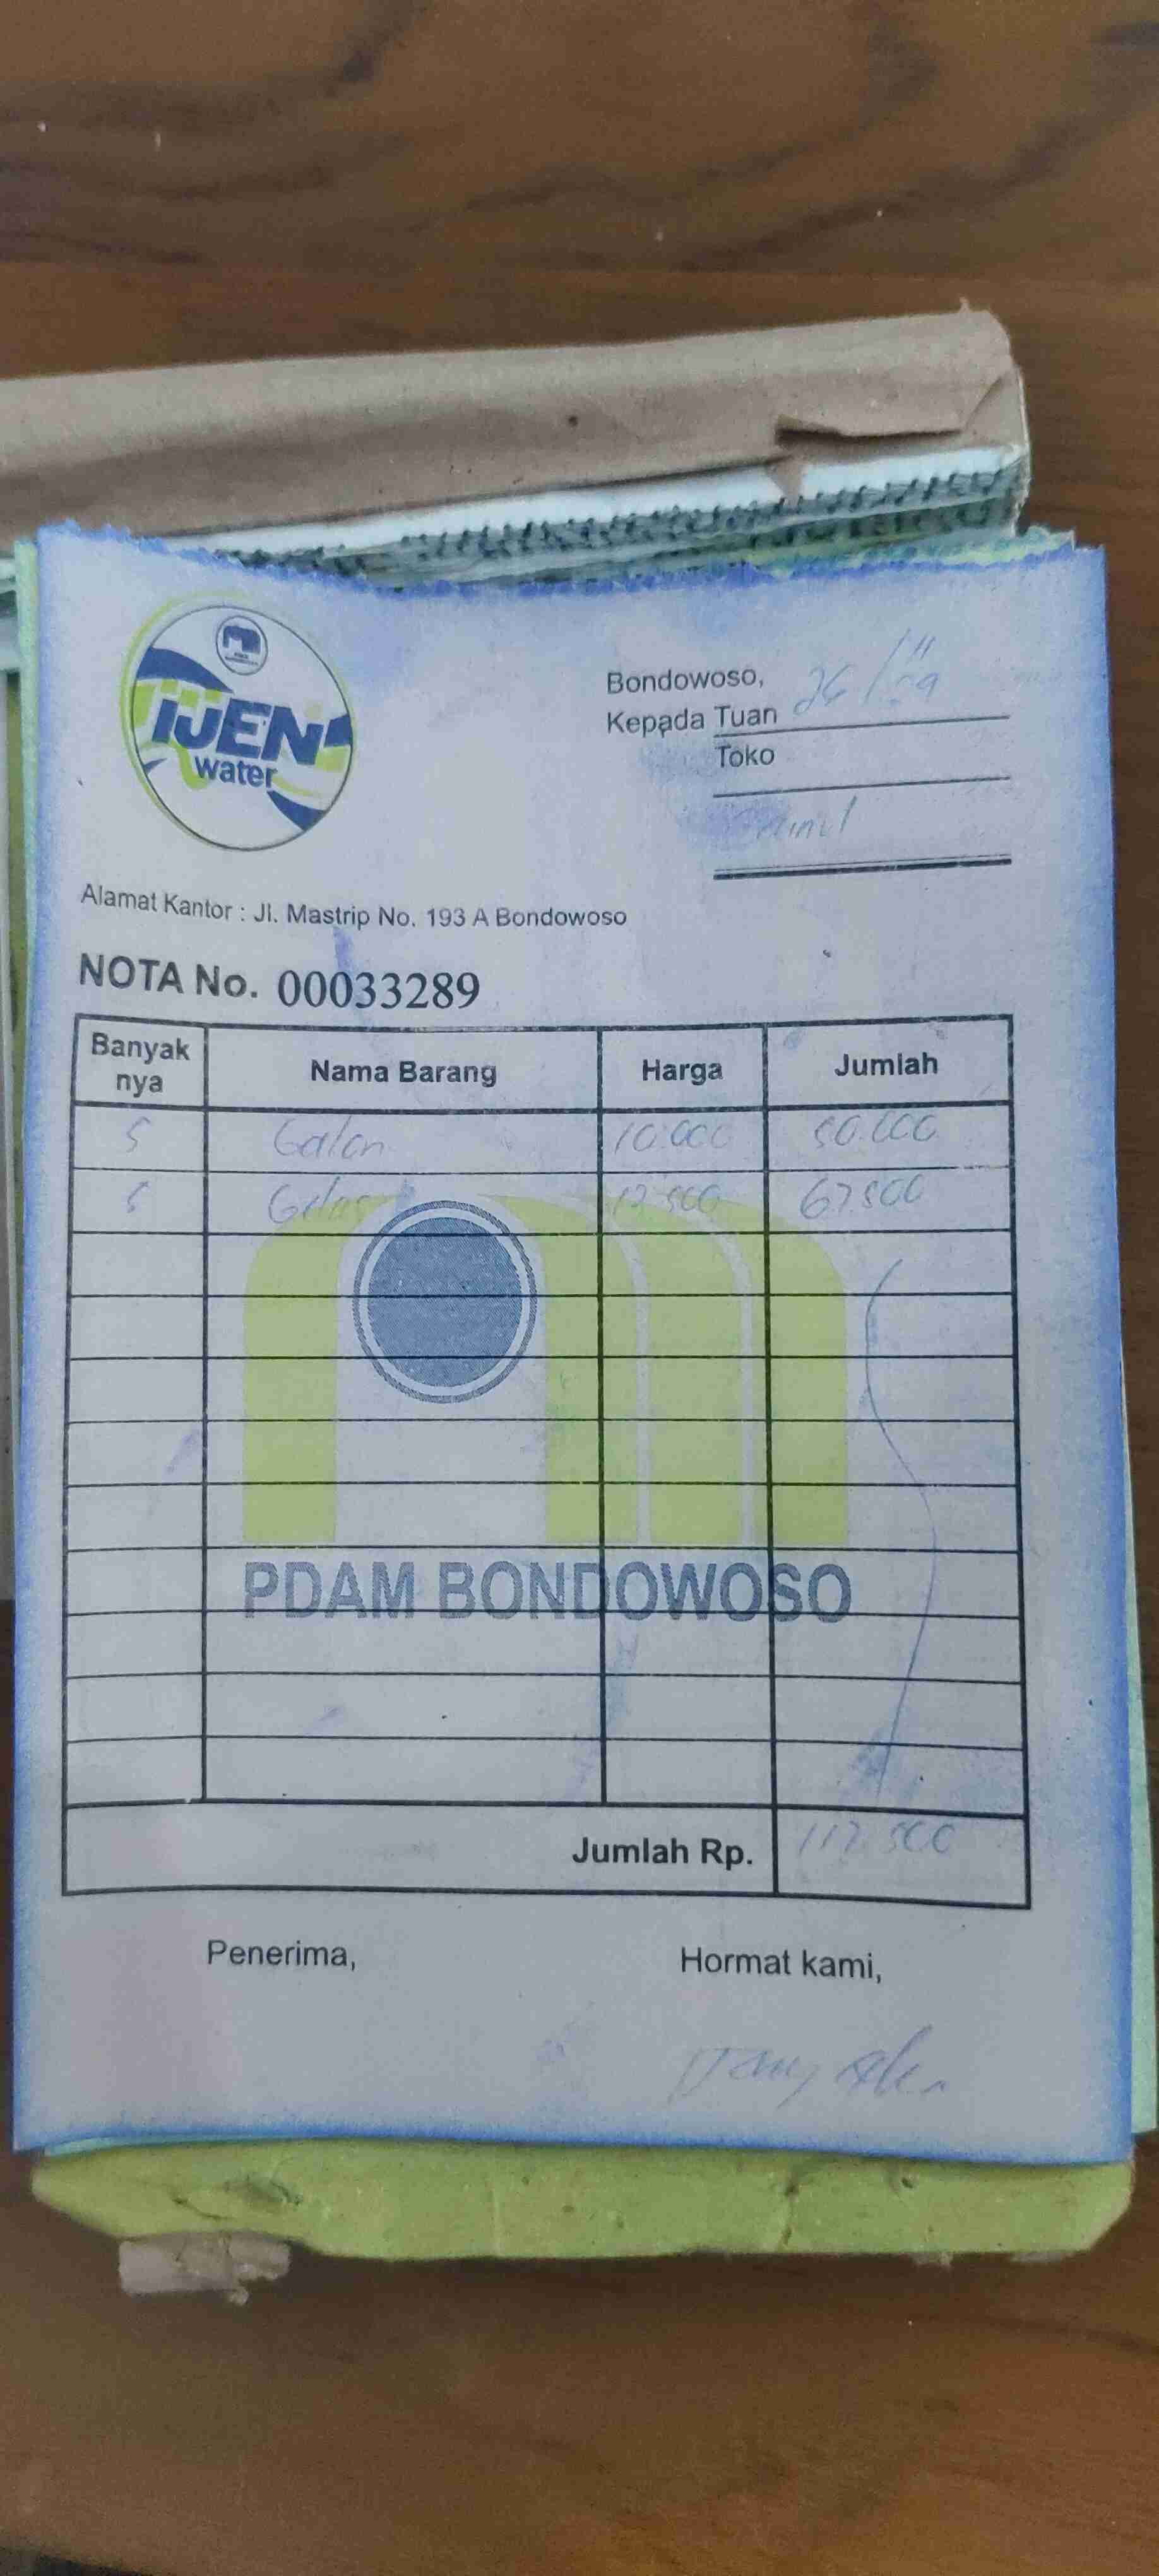 IJEN
water
Bondowoso, 26/
Kepada Tuan
Toko
Alamat Kantor : Jl. Mastrip No. 193 A Bondowoso
NOTA No. 00033289
Banyak nya Nama Barang Harga Jumlah
5 Galon 10.000 50.000
5 Gelas 12.500 62.500
PDAM BONDOWOSO
Jumlah Rp. 112.500
Penerima, Hormat kami,